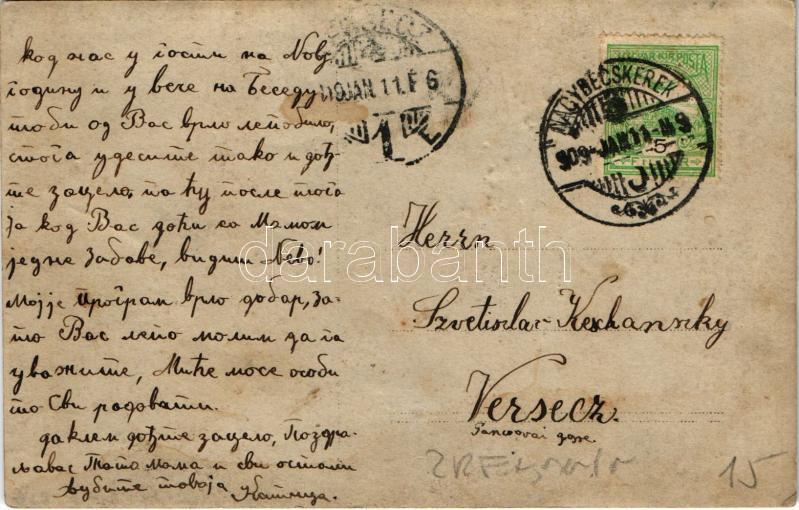 код нас у гости на Нову
годину и у вече на Беседу,
то би од Вас врло лепо било,
стога удесите тако и дођ-
те зацело, па ћу после тога
ја код Вас доћи са Мамом
једне забаве, видиш Лево!
Мој је програм врло добар, за-
то Вас лепо молим да га
уважите, Миће мосе особи
то Сви радовати.
дакле дођте зацело, Поздра-
ља вас Тата Мама и сви остали
љубите твоја Катица.
NAGYBECSKEREK
909 JAN 11
JAN. 11.
1
Herrn
Szvetislav
Versecz.
darabanth
15